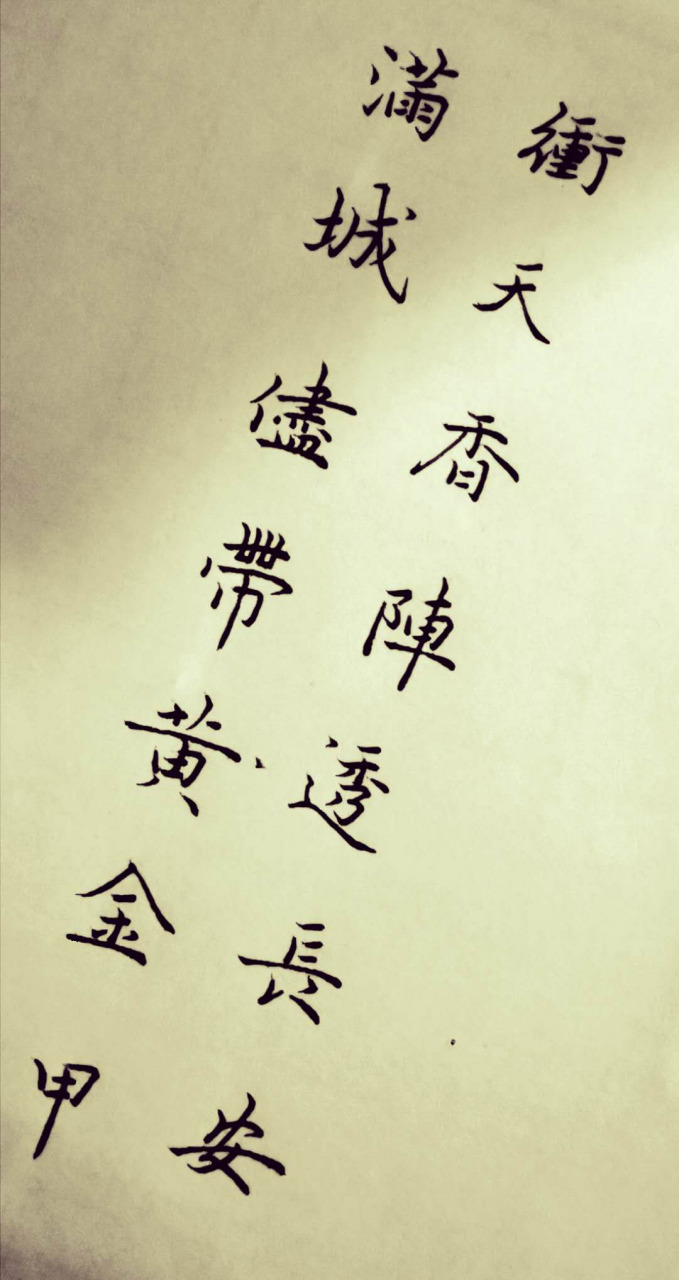 衝天香陣透長安
滿城儘帶黃金甲